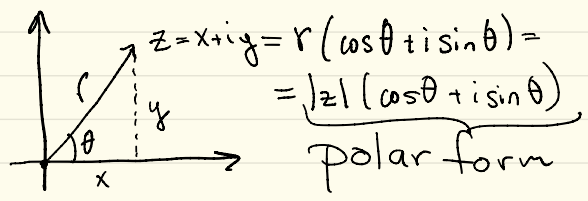 z = x+iy = r (cosθ + i sinθ) =
r
= |z| (cosθ + i sinθ)
y
θ
polar form
x